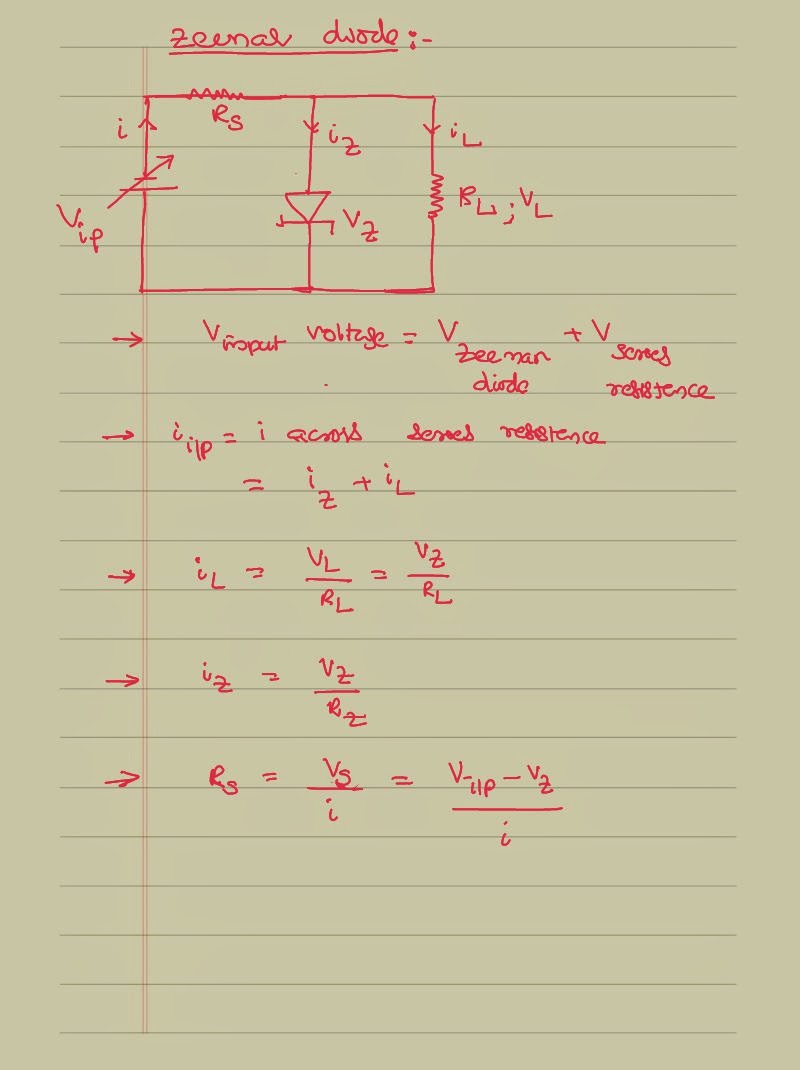 zeenar diode :-
i
Rs
iz
iL
Vi/p
Vz
RL ; VL
→ Vinput voltage = Vzeenar diode + Vseries resistence
→ ii/p = i across series resistence
= iz + iL
→ iL = VL/RL = Vz/RL
→ iz = Vz/Rz
→ Rs = Vs/i = Vi/p - Vz/i